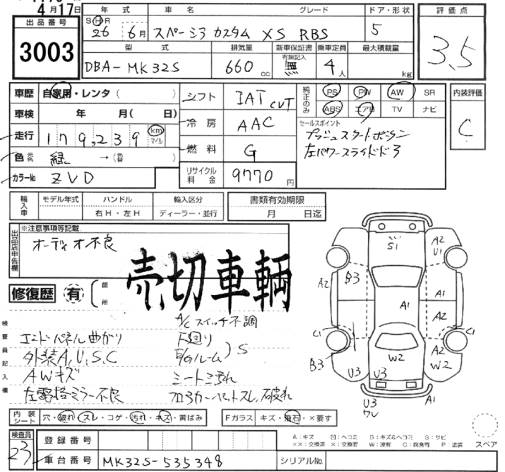 4月17日
出品番号 3003
年式 グレード ドア・形状 評価点
26年 6月 スペーシア カスタム XS RBS 5 3,5
型式 排気量 新車保証書 乗車定員 最大積載量
DBA-MK32S 660cc 有 無 4人 kg
車歴 自家用・レンタ( )
車検 年 月( 日)
走行 179,239 km マイル
色 緑 →( )
カラーNo ZVD
シフト IAT CVT
冷房 AAC
燃料 G
リサイクル料金 9770円
純正のみ PS PW AW SR
ABS エアB TV ナビ
内装評価 C
セールスポイント
プッシュスタートボタン
左パワースライドドア
輸入車 モデル年式 ハンドル 輸入区分
年 右H・左H ディーラー・並行
書類有効期限
月 日迄
出品店申告欄 ※注意事項等記載
オーディオ不良
売切車輌
修復歴 有 箇所
検査員記入欄
A/Cスイッチ不調
エンドパネル曲がり 下回り
外装A,U,S,C E/gルーム S
AWキズ シート汚れ
左電格ミラー不良
S1 A2 U1 B3 A1 A2 A1 C1 C1 B3 W2 A2 W2 U3 U3 U3 ワレ
内装シート 穴・破れ・スレ・コゲ・汚れ・キズ・黄ばみ
Fガラス キズ・飛石・×要す
スペア
検査員 23
登録番号
車台番号 MK32S-535348
シリアルNo.
A:キズ U:凹ヘコミ B:キズ&ヘコミ S:サビ